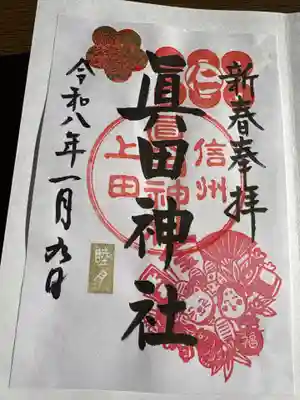 新春奉拝
眞田神社
信州
上田
眞田神社
仁
令和八年一月九日
睦月
福